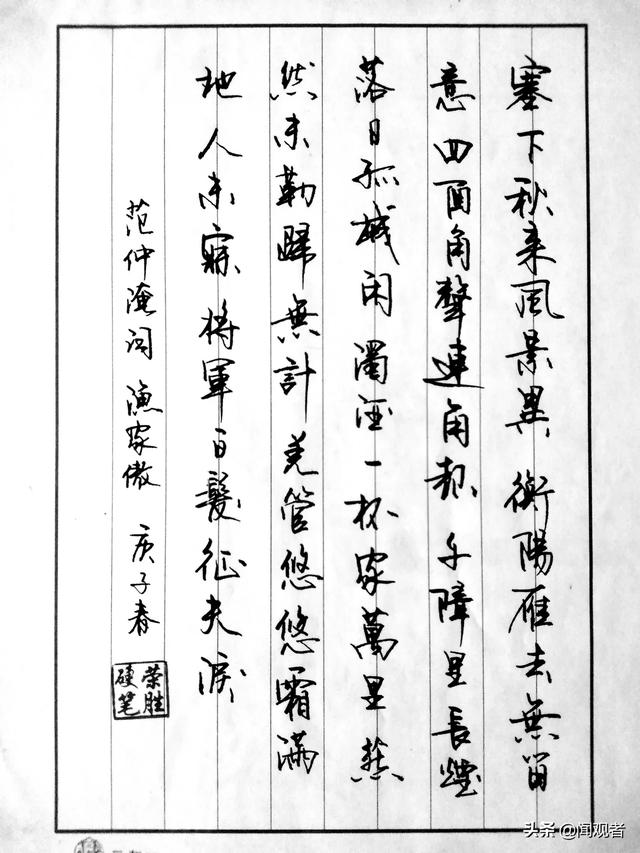 塞下秋来風景異 衡陽雁去無留
意四面角聲連角起千障里長煙
落日孤城闭濁酒一杯家萬里燕
然未勒歸無計羌管悠悠霜满
地人未寐将軍白髮征夫淚
范仲淹词 渔家傲 庚子春
荣胜
硬笔
头条 @闻观者